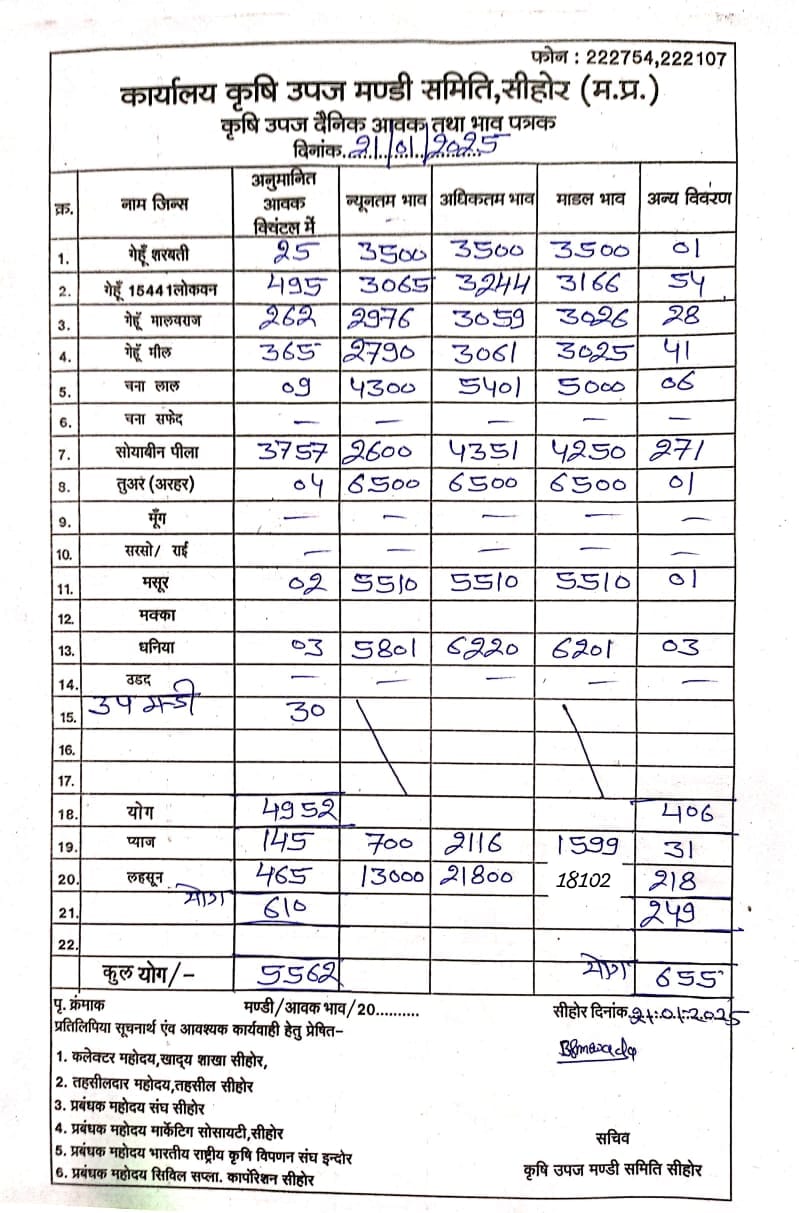 फोन : 222754,222107
कार्यालय कृषि उपज मण्डी समिति,सीहोर (म.प्र.)
कृषि उपज दैनिक आवक तथा भाव पत्रक
दिनांक. 21/01/2025
क्र. नाम जिन्स अनुमानित आवक क्विंटल में न्यूनतम भाव अधिकतम भाव माडल भाव अन्य विवरण
1. गेहूँ शरबती 25 3500 3500 3500 01
2. गेहूँ 15441लोकवन 495 3065 3244 3166 54
3. गेहूँ मालवराज 262 2976 3059 3026 28
4. गेहूँ मील 365 2790 3061 3025 41
5. चना लाल 09 4300 5401 5000 06
6. चना सफेद — — — — —
7. सोयाबीन पीला 3757 2600 4351 4250 271
8. तुअर (अरहर) 04 6500 6500 6500 01
9. मूँग — — — — —
10. सरसो/ राई — — — — —
11. मसूर 02 5510 5510 5510 01
12. मक्का
13. धनिया 03 5801 6220 6201 03
14. उडद — — — — —
15. उप मन्डी 30
16.
17.
18. योग 4952 406
19. प्याज 145 700 2116 1599 31
20. लहसून 465 13000 21800 18102 218
21. योग 610 249
22.
कुल योग/- 5562 योग 655
पृ. क्रंमाक मण्डी/आवक भाव/20.......... सीहोर दिनांक. 21.01.2025
प्रतिलिपिया सूचनार्थ एंव आवश्यक कार्यवाही हेतु प्रेषित-
1. कलेक्टर महोदय,खाद्य शाखा सीहोर,
2. तहसीलदार महोदय,तहसील सीहोर
3. प्रबंधक महोदय संघ सीहोर
4. प्रबंधक महोदय मार्केटिग सोसायटी,सीहोर
5. प्रबंधक महोदय भारतीय राष्ट्रीय कृषि विपणन संघ इन्दोर
6. प्रबंधक महोदय सिविल सप्ला. कार्पोरेशन सीहोर
सचिव
कृषि उपज मण्डी समिति सीहोर